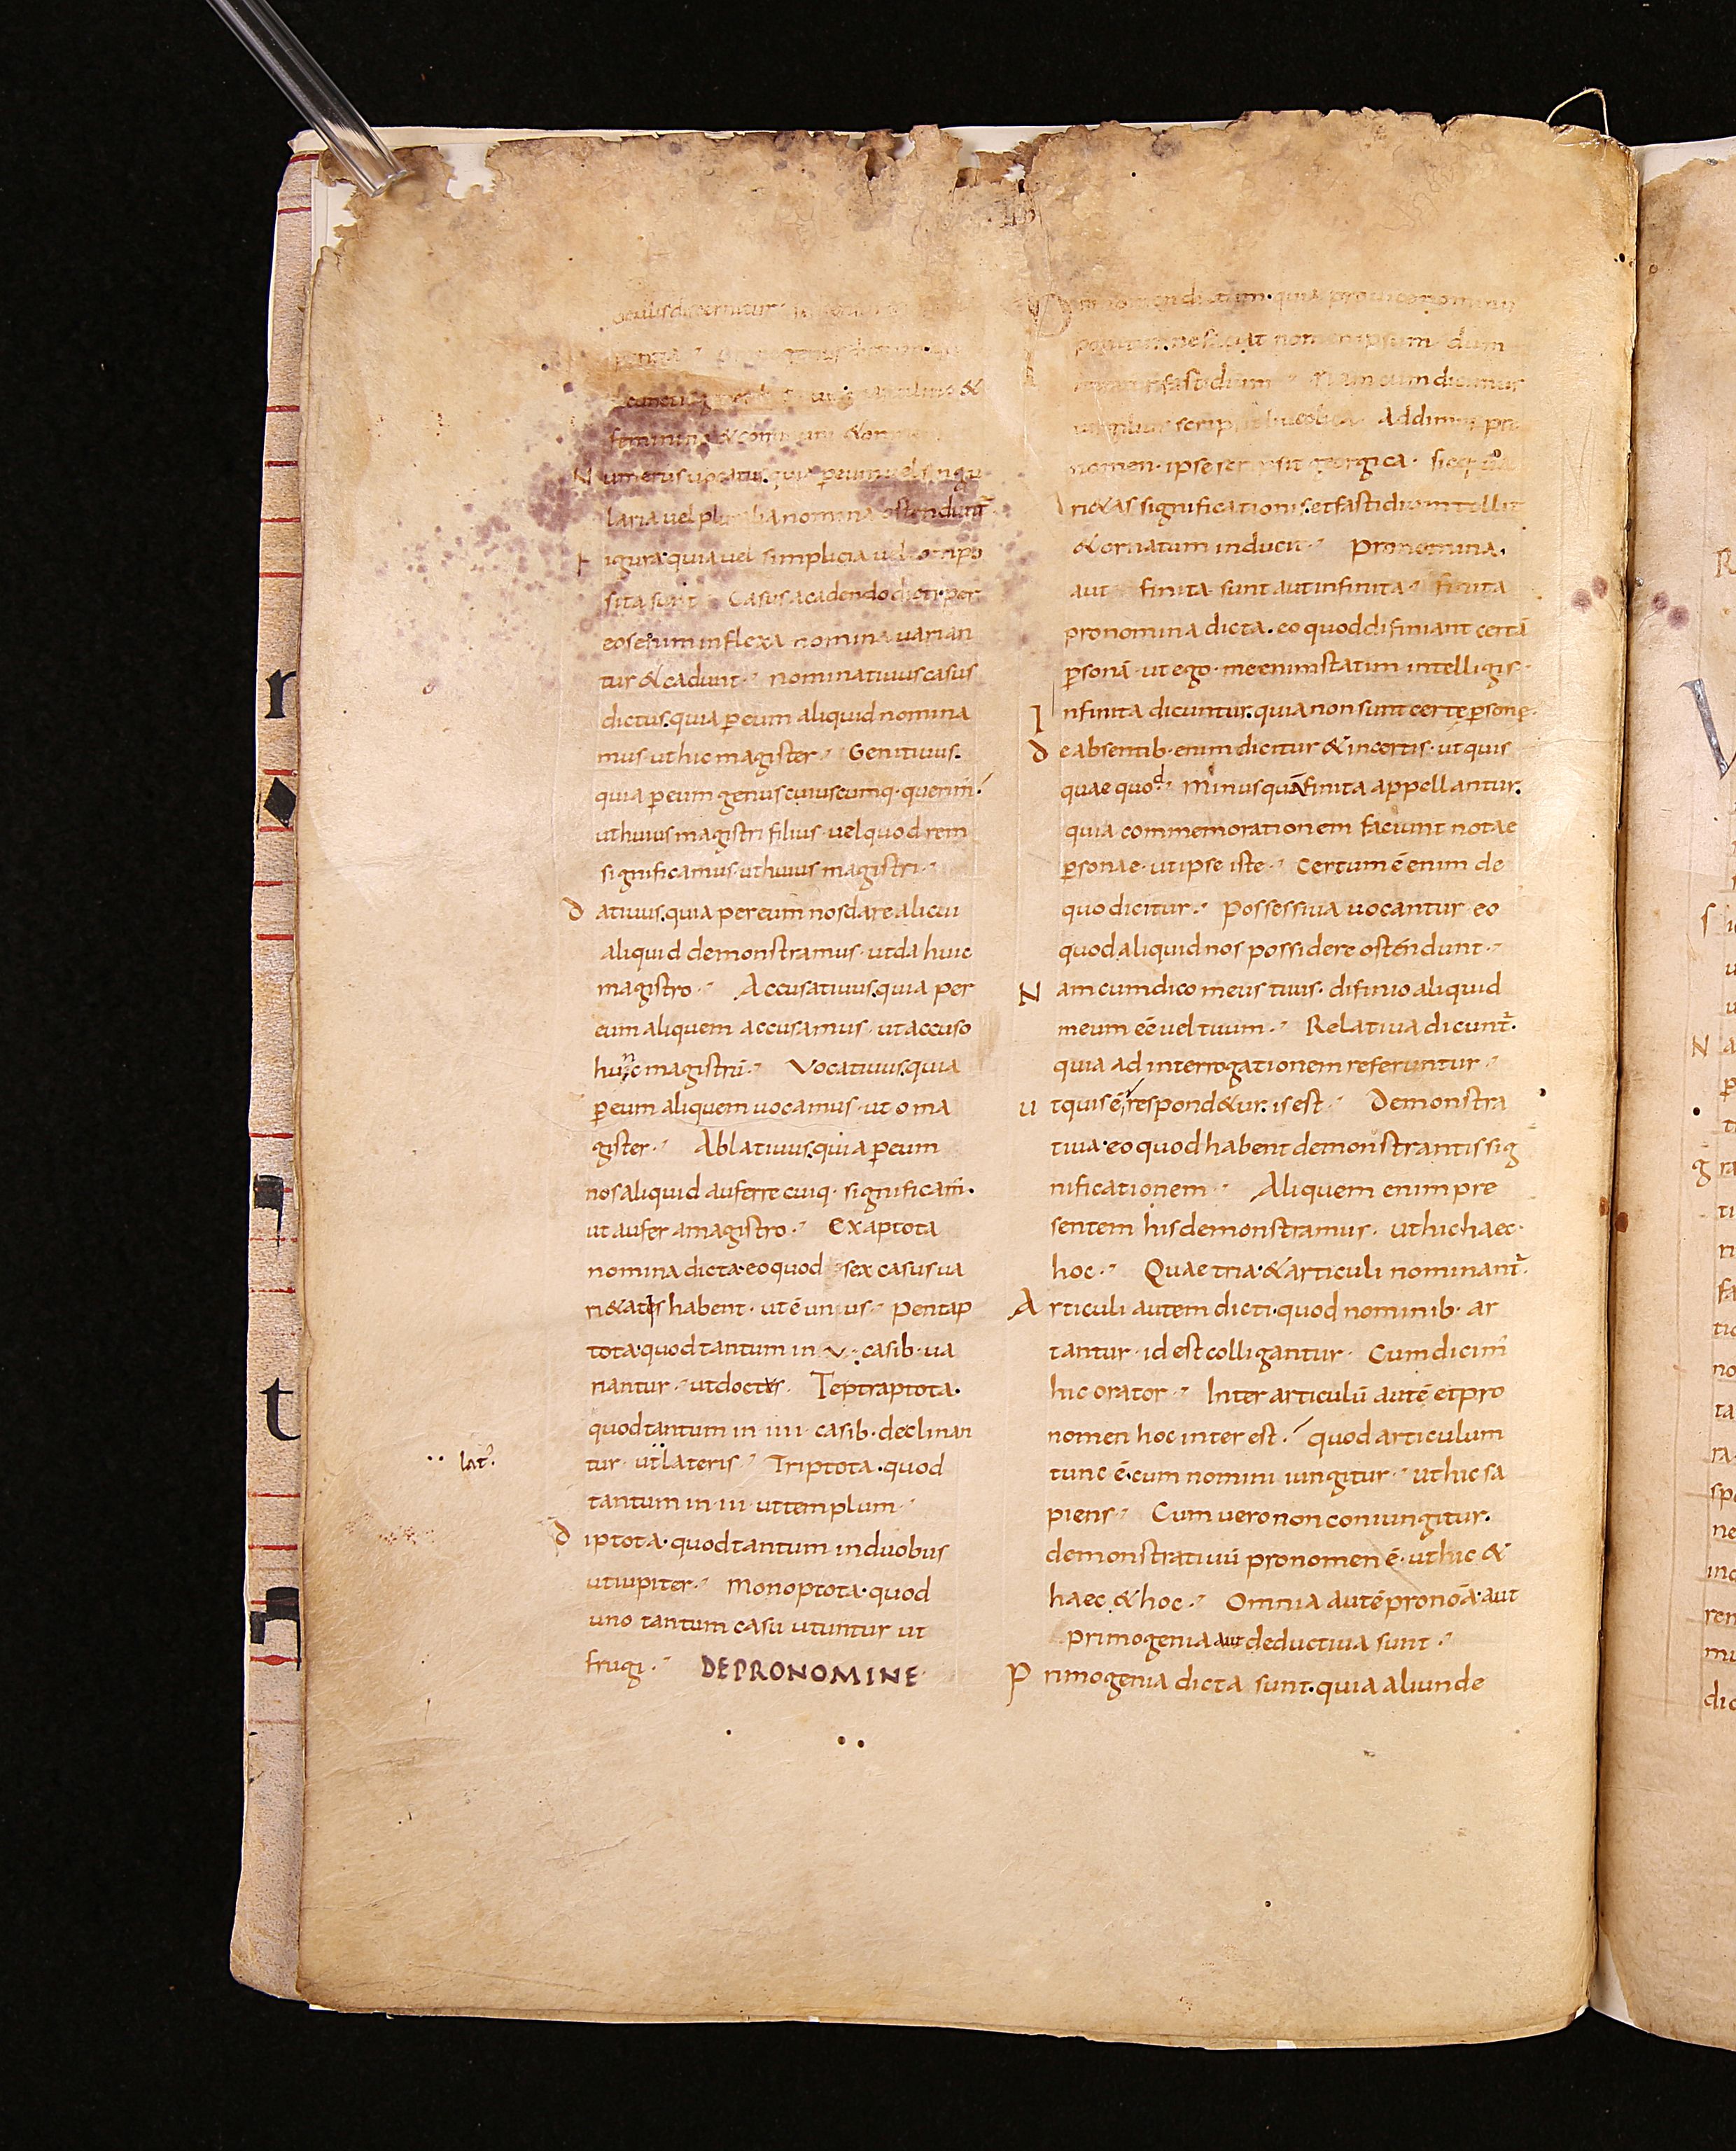 ocalis discernitur
feminino & communi & omni
Numerus uocatus. quia p̄ eum uel singu
laria uel pluralia nomina ostendunt̄
Figura. quia uel simplicia uel compo
sita sunt. Casus a cadendo dicti. per
eos enim inflexa nomina uarian
tur & cadunt. nominatiuus casus
dictus. quia p̄ eum aliquid nomina
mus. ut hic magister. Genitiuus.
quia p̄ eum genus cuiuscumq. querim̄.
ut huius magistri filius. uel quod rem
significamus. ut huius magistri.
datiuus. quia per eum nos dare alicui
aliquid demonstramus. ut da huic
magistro. Accusatiuus. quia per
eum aliquem accusamus. ut accuso
hunc magistrū. Vocatiuus. quia
p̄ eum aliquem uocamus. ut o ma
gister. Ablatiuus. quia p̄ eum
nos aliquid auferre cuiq. significam̄.
ut aufer a magistro. Exaptota
nomina dicta. eo quod sex casus ua
ri&atis habent. ut ē unius. pentap
tota. quod tantum in v. casib. ua
riantur. ut doctus. Teptraptota.
quod tantum in iiii casib. declinan
tur. ut lateris. Triptota. quod
lat̄.
tantum in iii ut templum.
diptota. quod tantum in duobus
ut iupiter. monoptota. quod
uno tantum casu utuntur ut
frugi. DE PRONOMINE
dictum. quia pro uice nominum
ponitur. ne faciat nomen ipsum dum
fastidium. Nam cum dicimus
uirgilius scripsit bucolica. Addimus pro
nomen. ipse scripsit georgica. sicq. ua
ri&as significationis. et fastidium tollit
& ornatum inducit. pronomina.
aut finita sunt aut infinita. finita
pronomina dicta. eo quod difiniant certā
p̄sonā. ut ego. me enim statim intelligis.
Infinita dicuntur. quia non sunt certę p̄sonę.
de absentib. enim dicitur & incertis. ut quis
quae quod. Minus quā finita appellantur.
quia commemorationem faciunt notae
p̄sonae. ut ipse iste. Certum ē enim de
quo dicitur. possessiua uocantur eo
quod aliquid nos possidere ostendunt.
Nam cum dico meus tuus. difinio aliquid
meum eē uel tuum. Relatiua dicunt̄.
quia ad interrogationem referuntur.
ut quis ē. respond&ur. is est. Demonstra
tiua. eo quod habent demonstrantis sig
nificationem. Aliquem enim pre
sentem his demonstramus. ut hic haec.
hoc. Quae tria. & articuli nominant̄.
Articuli autem dicti. quod nominib. ar
tantur. id est colligantur. Cum dicim̄
hic orator. Inter articulū autē et pro
nomen hoc inter est. quod articulum
tunc ē. cum nomini iungitur. ut hic sa
piens. Cum uero non coniungitur.
demonstratiuū pronomen ē. ut hic &
haec & hoc. Omnia autē pronōa. aut
primogenia aut deductiua sunt.
Primogenia dicta sunt. quia aliunde